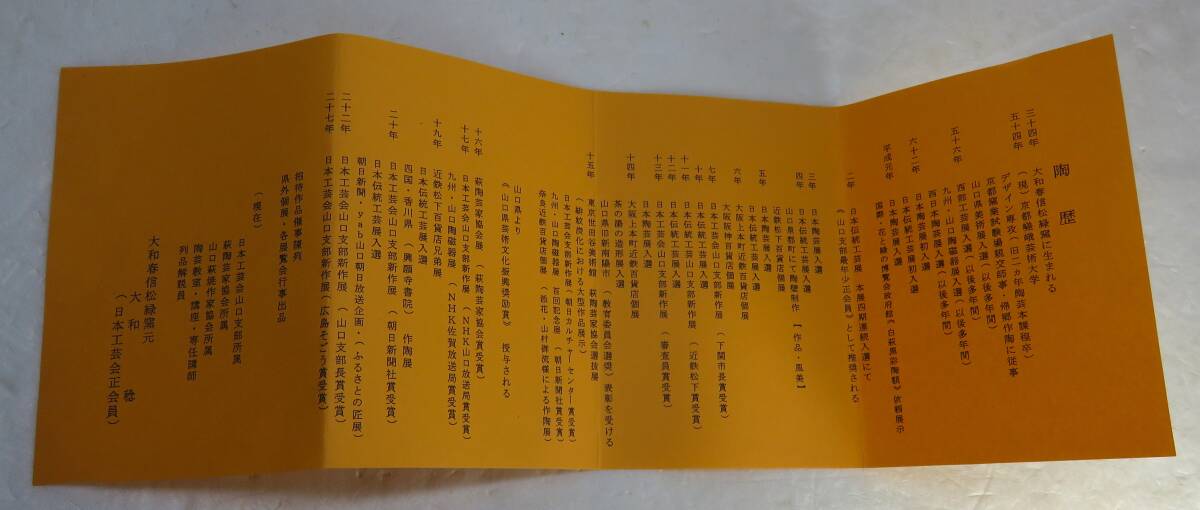 陶歴
三十四年　大和春信松緑窯に生まれる
五十四年　（現）京都嵯峨芸術大学
デザイン専攻（旧二カ年陶芸本課程卒）
京都窯業試験場級文師事・帰郷作陶に従事
山口県美術展入選（以後多年間）
五十六年　西部工芸展入選（以後多年間）
九州・山口陶磁器展入選（以後多年間）
西日本陶芸展入選（以後多年間）
六十二年　日本伝統工芸展初入選
日本陶芸展初入選
平成元年　国際・花と緑の博覧会政府館《白萩黒彩陶額》依頼展示
二年　日本伝統工芸展　本展四期連続入選にて
《山口支部最年少正会員》として推奨される
三年　日本陶芸展入選
日本伝統工芸展入選
四年　山口県都町にて陶壁制作【作品・風美】
近鉄松下百貨店個展
五年　日本陶芸展入選
日本伝統工芸展入選
六年　大阪上本町近鉄百貨店個展
大阪阪神百貨店個展
七年　日本工芸会山口支部新作展（下関市長賞受賞）
十年　日本伝統工芸展入選
十一年　日本工芸会山口支部新作展（近鉄松下賞受賞）
十二年　日本伝統工芸展入選
十三年　日本工芸会山口支部新作展（審査員賞受賞）
日本陶芸展入選
十四年　大阪上本町近鉄百貨店個展
茶の湯の造形展入選
山口県旧新南陽市（教育委員会選奨）表彰を受ける
十五年　東京世田谷美術館　萩陶芸家協会選抜展
（緋紋炭化における大型作品展示）
日本工芸会支部新作展（朝日カルチャーセンター賞受賞）
九州・山口陶磁展　百回記念展（朝日新聞社賞受賞）
奈良近鉄百貨店個展（花・山村御流様による作陶展）
山口県より
《山口県芸術文化振興奨励賞》　授与される
十六年　萩陶芸家協会展（萩陶芸家協会賞受賞）
十七年　日本工芸会山口支部新作展（NHK山口放送局賞受賞）
九州・山口陶磁器展（NHK佐賀放送局賞受賞）
十九年　近鉄松下百貨店兄弟展
日本伝統工芸展入選
四国・香川県（興願寺書院）作陶展
二十年　日本工芸会山口支部新作展（朝日新聞社賞受賞）
日本伝統工芸展入選
朝日新聞・yab山口朝日放送企画・（ふるさとの匠展）
二十二年　日本工芸会山口支部新作展（山口支部長賞受賞）
二十七年　日本工芸会山口支部新作展（広島そごう賞受賞）
招待作品催事陳列
県外個展・各展覧会行事出品
（現在）
日本工芸会山口支部所属
萩陶芸家協会所属
山口萩焼作家協会所属
陶芸教室・講座・専任講師
列品解説員
大和春信松緑窯元
大和　稔
（日本工芸会正会員）